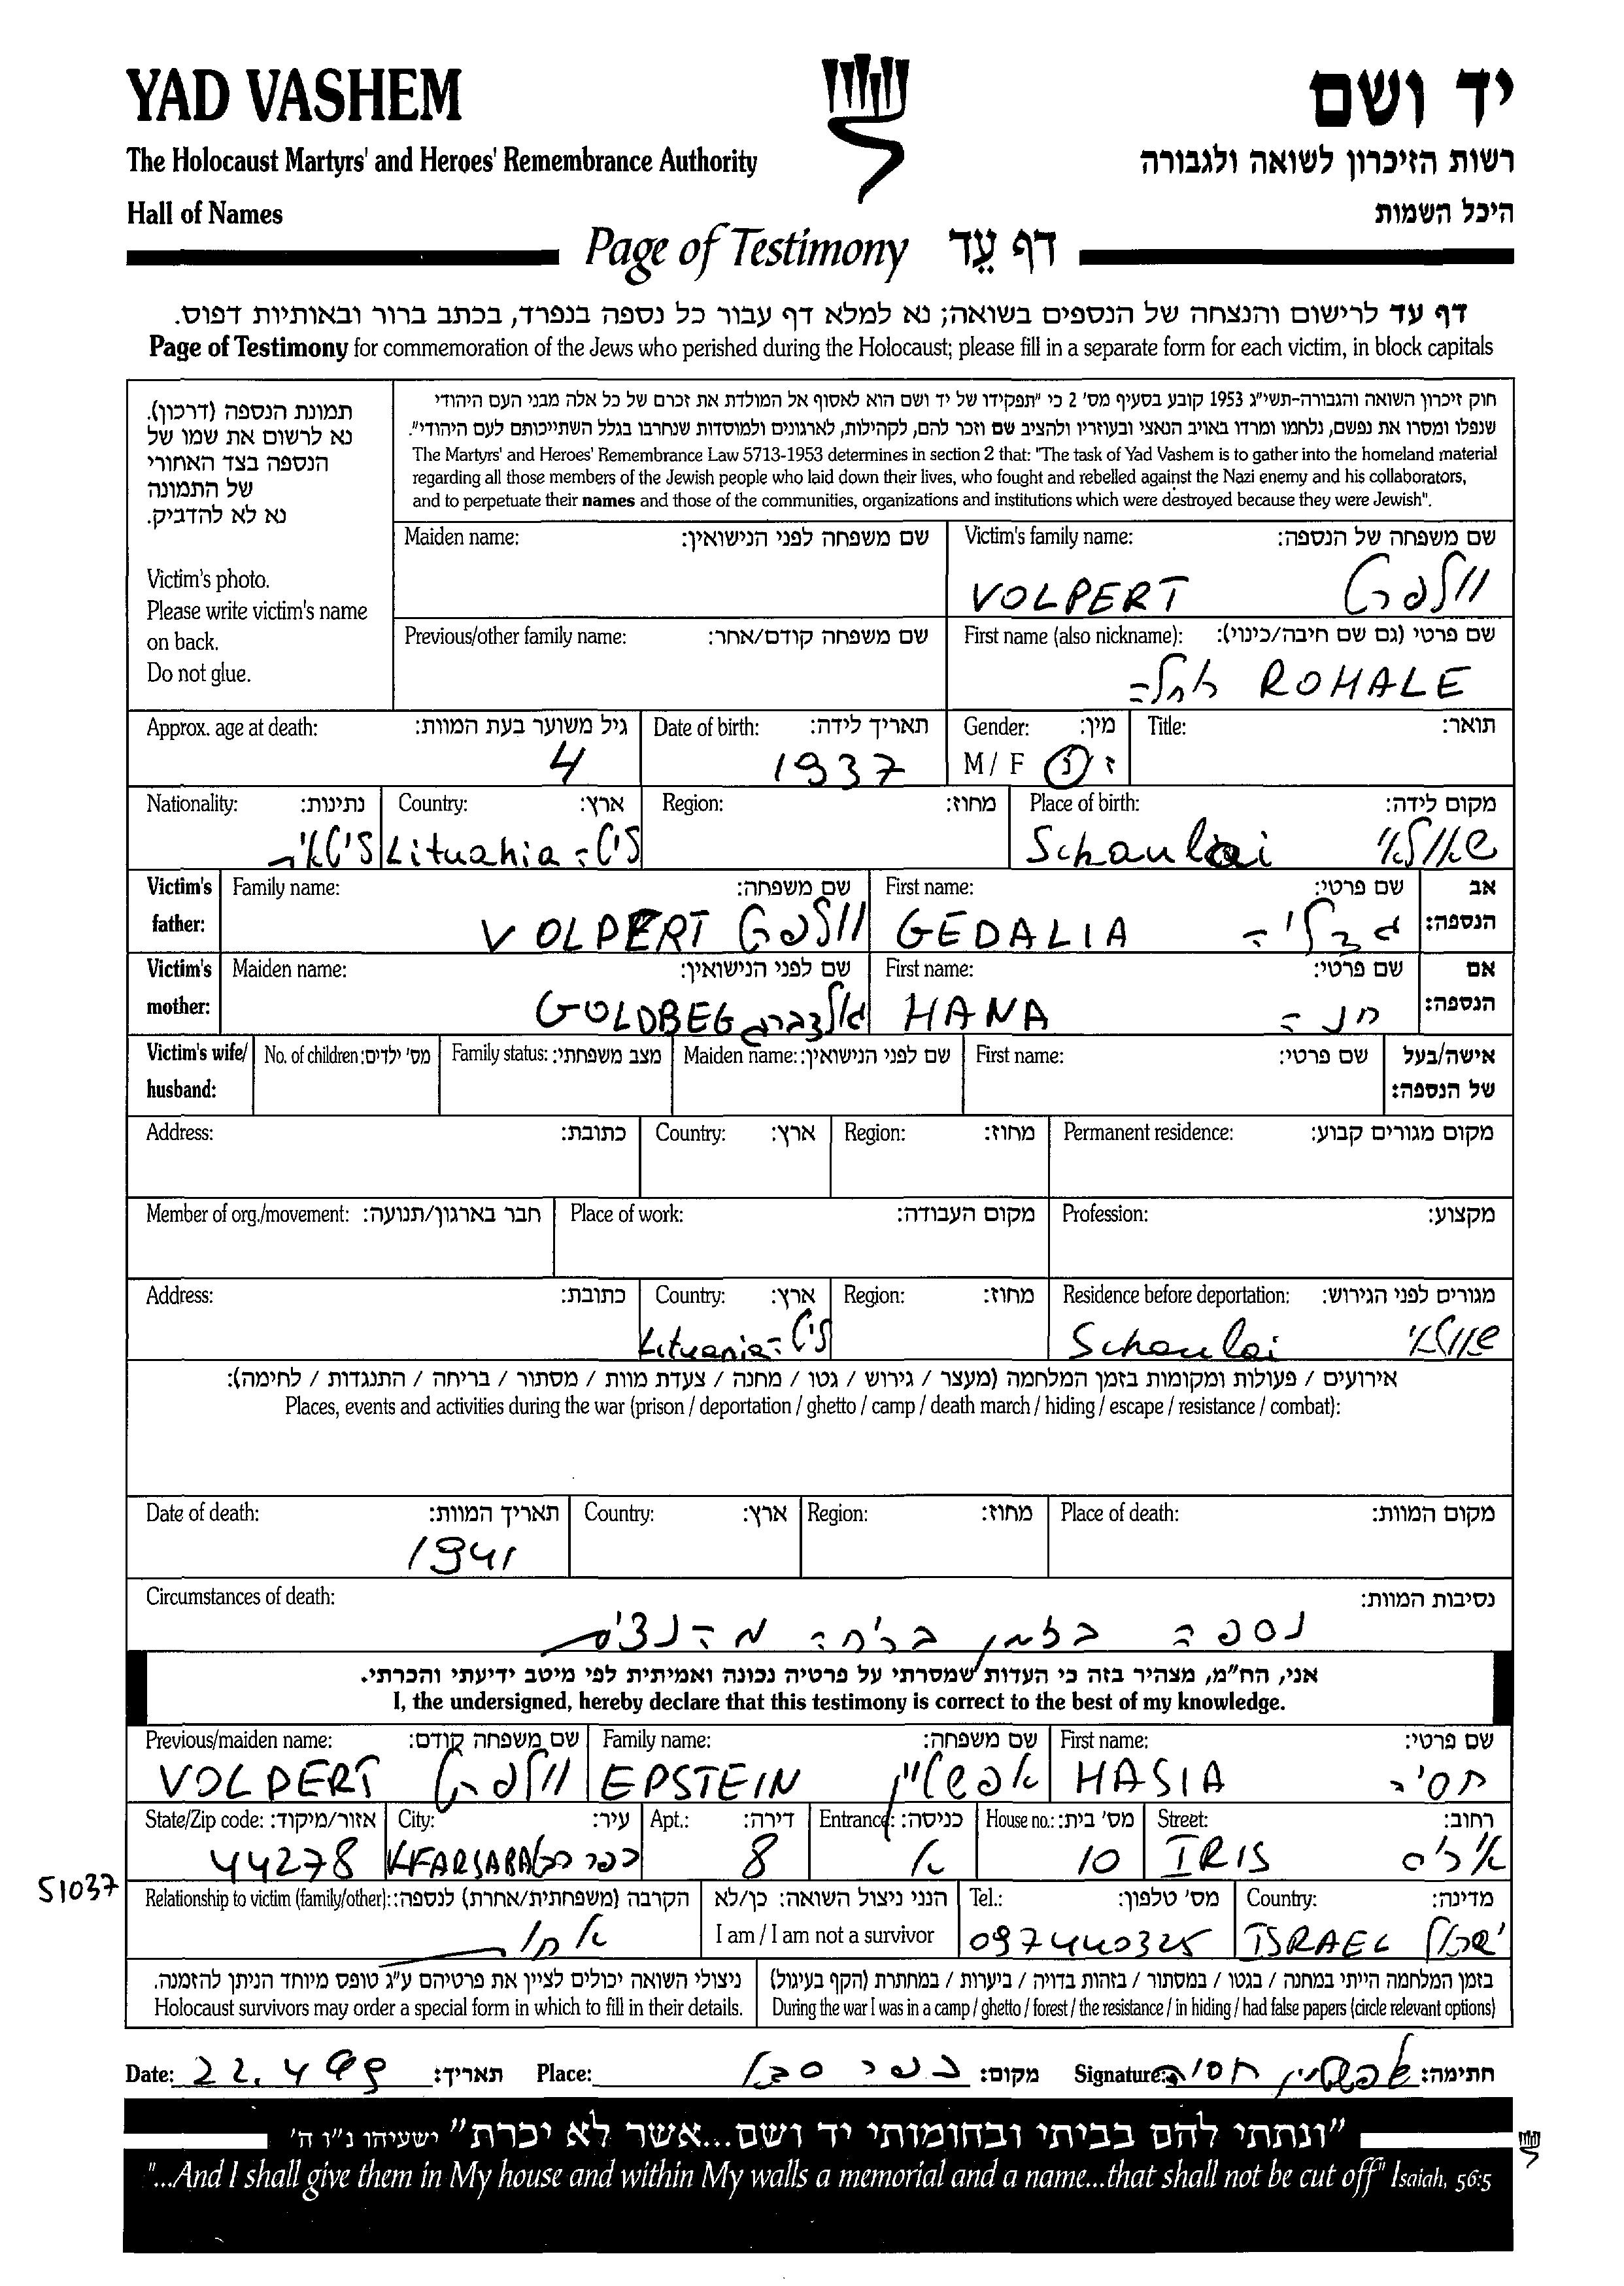 YAD VASHEM
יד ושם
The Holocaust Martyrs' and Heroes' Remembrance Authority
רשות הזיכרון לשואה ולגבורה
Hall of Names
היכל השמות
Page of Testimony דף עֵד
דף עד לרישום והנצחה של הנספים בשואה; נא למלא דף עבור כל נספה בנפרד, בכתב ברור ובאותיות דפוס.
Page of Testimony for commemoration of the Jews who perished during the Holocaust; please fill in a separate form for each victim, in block capitals
תמונת הנספה (דרכון).
נא לרשום את שמו של
הנספה בצד האחורי
של התמונה
נא לא להדביק.
Victim's photo.
Please write victim's name
on back.
Do not glue.
חוק זיכרון השואה והגבורה-תשי"ג 1953 קובע בסעיף מס' 2 כי "תפקידו של יד ושם הוא לאסוף אל המולדת את זכרם של כל אלה מבני העם היהודי
שנפלו ומסרו את נפשם, נלחמו ומרדו באויב הנאצי ובעוזריו ולהציב שם וזכר להם, לקהילות, לארגונים ולמוסדות שנחרבו בגלל השתייכותם לעם היהודי".
The Martyrs' and Heroes' Remembrance Law 5713-1953 determines in section 2 that: "The task of Yad Vashem is to gather into the homeland material
regarding all those members of the Jewish people who laid down their lives, who fought and rebelled against the Nazi enemy and his collaborators,
and to perpetuate their names and those of the communities, organizations and institutions which were destroyed because they were Jewish".
Maiden name: שם משפחה לפני הנישואין:
Victim's family name: שם משפחה של הנספה:
VOLPERT וולפרט
Previous/other family name: שם משפחה קודם/אחר:
First name (also nickname): שם פרטי (גם שם חיבה/כינוי):
רחלה ROHALE
Approx. age at death: גיל משוער בעת המוות:
4
Date of birth: תאריך לידה:
1937
Gender: מין:
M / F ז / נ
Title: תואר:
Nationality: נתינות:
ליטאית
Country: ארץ:
Lituania ליטה
Region: מחוז:
Place of birth: מקום לידה:
Schaulai שאולאי
Victim's father:
Family name: שם משפחה:
VOLPERT וולפרט
First name: שם פרטי:
GEDALIA גדליה
אב הנספה:
Victim's mother:
Maiden name: שם לפני הנישואין:
GOLDBEG גולדברג
First name: שם פרטי:
HANA חנה
אם הנספה:
Victim's wife/ husband:
No. of children: מס' ילדים:
Family status: מצב משפחתי:
Maiden name: שם לפני הנישואין:
First name: שם פרטי:
אישה/בעל של הנספה:
Address: כתובת:
Country: ארץ:
Region: מחוז:
Permanent residence: מקום מגורים קבוע:
Member of org./movement: חבר בארגון/תנועה:
Place of work: מקום העבודה:
Profession: מקצוע:
Address: כתובת:
Country: ארץ:
Lituania ליטה
Region: מחוז:
Residence before deportation: מגורים לפני הגירוש:
Schaulai שאולאי
אירועים / פעולות ומקומות בזמן המלחמה (מעצר / גירוש / גטו / מחנה / צעדת מוות / מסתור / בריחה / התנגדות / לחימה):
Places, events and activities during the war (prison / deportation / ghetto / camp / death march / hiding / escape / resistance / combat):
Date of death: תאריך המוות:
1941
Country: ארץ:
Region: מחוז:
Place of death: מקום המוות:
Circumstances of death: נסיבות המוות:
נספה בזמן בריחה מהנצים
אני, הח"מ, מצהיר בזה כי העדות שמסרתי על פרטיה נכונה ואמיתית לפי מיטב ידיעתי והכרתי.
I, the undersigned, hereby declare that this testimony is correct to the best of my knowledge.
Previous/maiden name: שם משפחה קודם:
VOLPERT וולפרט
Family name: שם משפחה:
EPSTEIN אפשטיין
First name: שם פרטי:
HASIA חסיה
State/Zip code: אזור/מיקוד:
44278
City: עיר:
KFARSABA כפר סבא
Apt.: דירה:
8
Entrance: כניסה:
א
House no.: מס' בית:
10
Street: רחוב:
IRIS איריס
51037
Relationship to victim (family/other): הקרבה (משפחתית/אחרת) לנספה:
אחות
הנני ניצול השואה: כן/לא
I am / I am not a survivor
Tel.: מס' טלפון:
097440325
Country: מדינה:
ISRAEL ישראל
ניצולי השואה יכולים לציין את פרטיהם ע"ג טופס מיוחד הניתן להזמנה.
Holocaust survivors may order a special form in which to fill in their details.
בזמן המלחמה הייתי במחנה / בגטו / במסתור / בזהות בדויה / ביערות / במחתרת (הקף בעיגול)
During the war I was in a camp / ghetto / forest / the resistance / in hiding / had false papers (circle relevant options)
Date: 22.4.99 תאריך: Place: כפר סבא מקום: Signature: אפשטיין חסיה חתימה:
"ונתתי להם בביתי ובחומותי יד ושם...אשר לא יכרת" ישעיהו נ"ו ה'
"...And I shall give them in My house and within My walls a memorial and a name...that shall not be cut off" Isaiah, 56:5